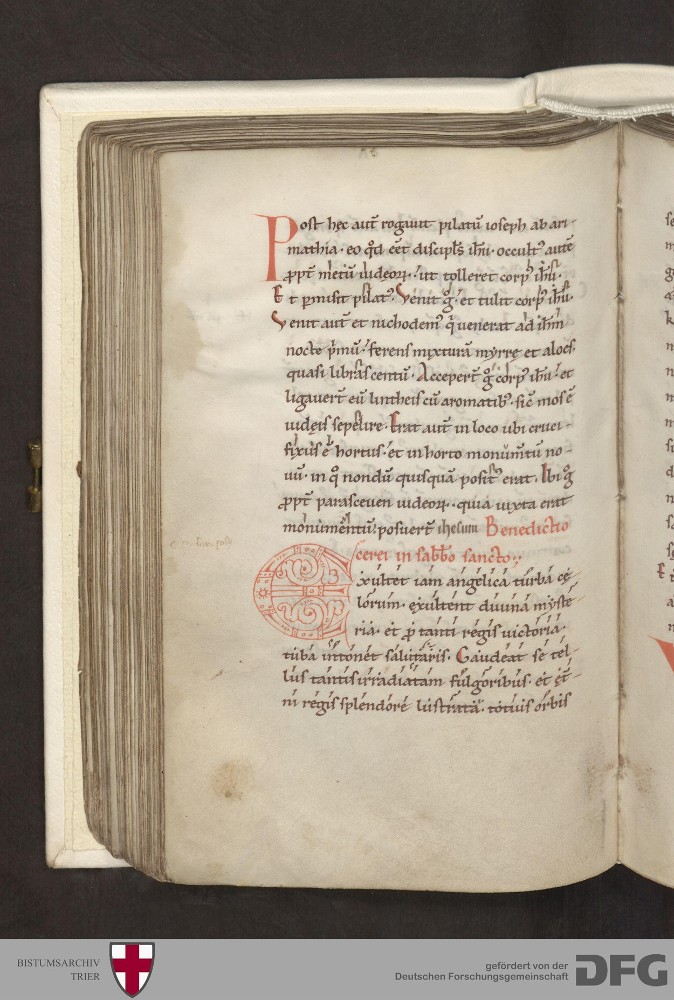 Post hęc aut̄ rogauit pilatū ioseph ab ari-
mathia · eo qđ eēt discipl̄s ih̄u · occult᷒ autē
ꝓpt̄ metū iudeoꝝ · ut tolleret corp᷒ ih̄u ·
Et ꝑmisit pilat᷒ · Venit g̊ · et tulit corp᷒ ih̄u ·
Venit aut̄ et nichodem᷒ qͥ uenerat ad ih̄m
nocte pͥmū · ferens mixturā myrrę et aloes
quasi libras centū · Acceper̄t g̊ corp᷒ ih̄u · et
ligauer̄t eū lintheis cū aromatib᷒ · sic̄ mos ē
iudęis sepelire · Erat aut̄ in loco ubi cruci-
fixus ē hortus · et in horto monum̄tū no-
uū · in q̊ nondū quisquā posit᷒ erat · Ibi g̊
ꝓpt̄ parasceuen iudeoꝝ · quia iuxta erat
monumentū · posuer̄t ihesum Benedictio
cerei in sabb̄o sancto ·
Exultet iam angelica turba cę-
lorum · exultent diuina mystę-
ria · et p̄ tanti regis uictoria ·
tuba intonet salutaris · Gaudeat se tel-
lus tantis irradiatam fulgoribus · et ęt̄-
ni regis splendore lustrata · totius orbis
BISTUMSARCHIV
TRIER
gefördert von der
Deutschen Forschungsgemeinschaft
DFG